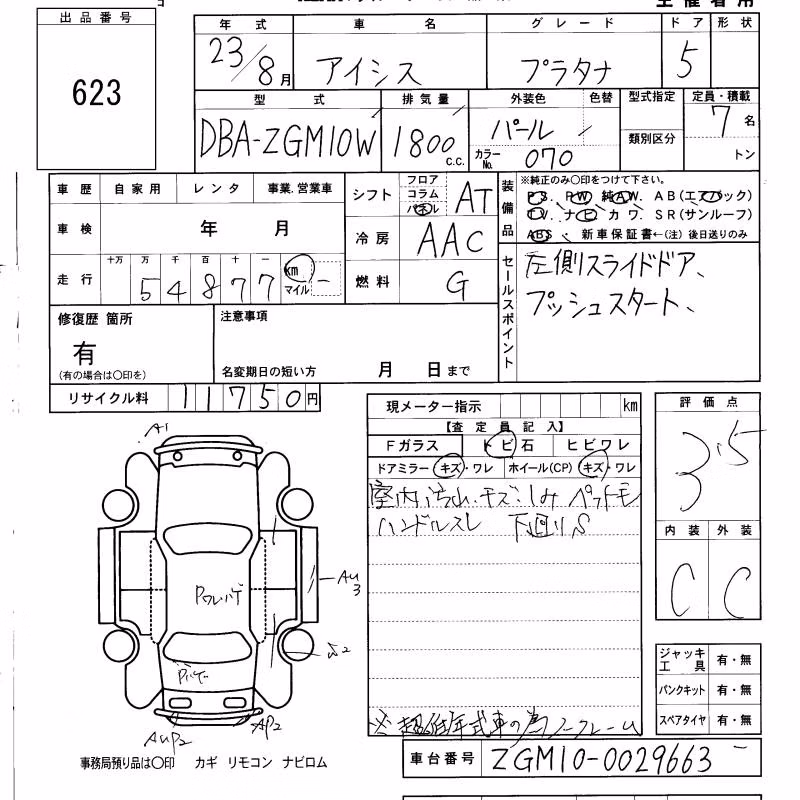 出品番号
623
年式 車名 グレード ドア 形状
23/8月 アイシス プラタナ 5
型式 排気量 外装色 色替 型式指定 定員・積載
DBA-ZGM10W 1800 c.c. パール 類別区分 7名
カラーNo. 070 トン
車歴 自家用 レンタ 事業.営業車
シフト フロア コラム パネル AT
装備品 ※純正のみ〇印をつけて下さい。
P S. P W 純 A W. A B (エアバック)
T V. ナ ビ カ ワ. S R (サンルーフ)
A B S. 新車保証書←(注) 後日送りのみ
車検 年 月
冷房 AAC
走行 十万 万 千 百 十 一
54877 km マイル
燃料 G
セールスポイント 左側スライドドア、
プッシュスタート、
修復歴 箇所 注意事項
有
(有の場合は〇印を) 名変期日の短い方 月 日まで
リサイクル料 11750円
現メーター指示 km
【査定員記入】
Fガラス トビ石 ヒビワレ
ドアミラー キズ・ワレ ホイール(CP) キズ・ワレ
室内汚れ.キズ.しみ ペット毛
ハンドルスレ 下回りS
※超低年式車の為ノークレーム
評価点
3.5
内装 外装
C C
A1
AU3
S2
AP2
AUP2
ジャッキ工具 有・無
パンクキット 有・無
スペアタイヤ 有・無
事務局預り品は〇印 カギ リモコン ナビロム
車台番号 ZGM10-0029663